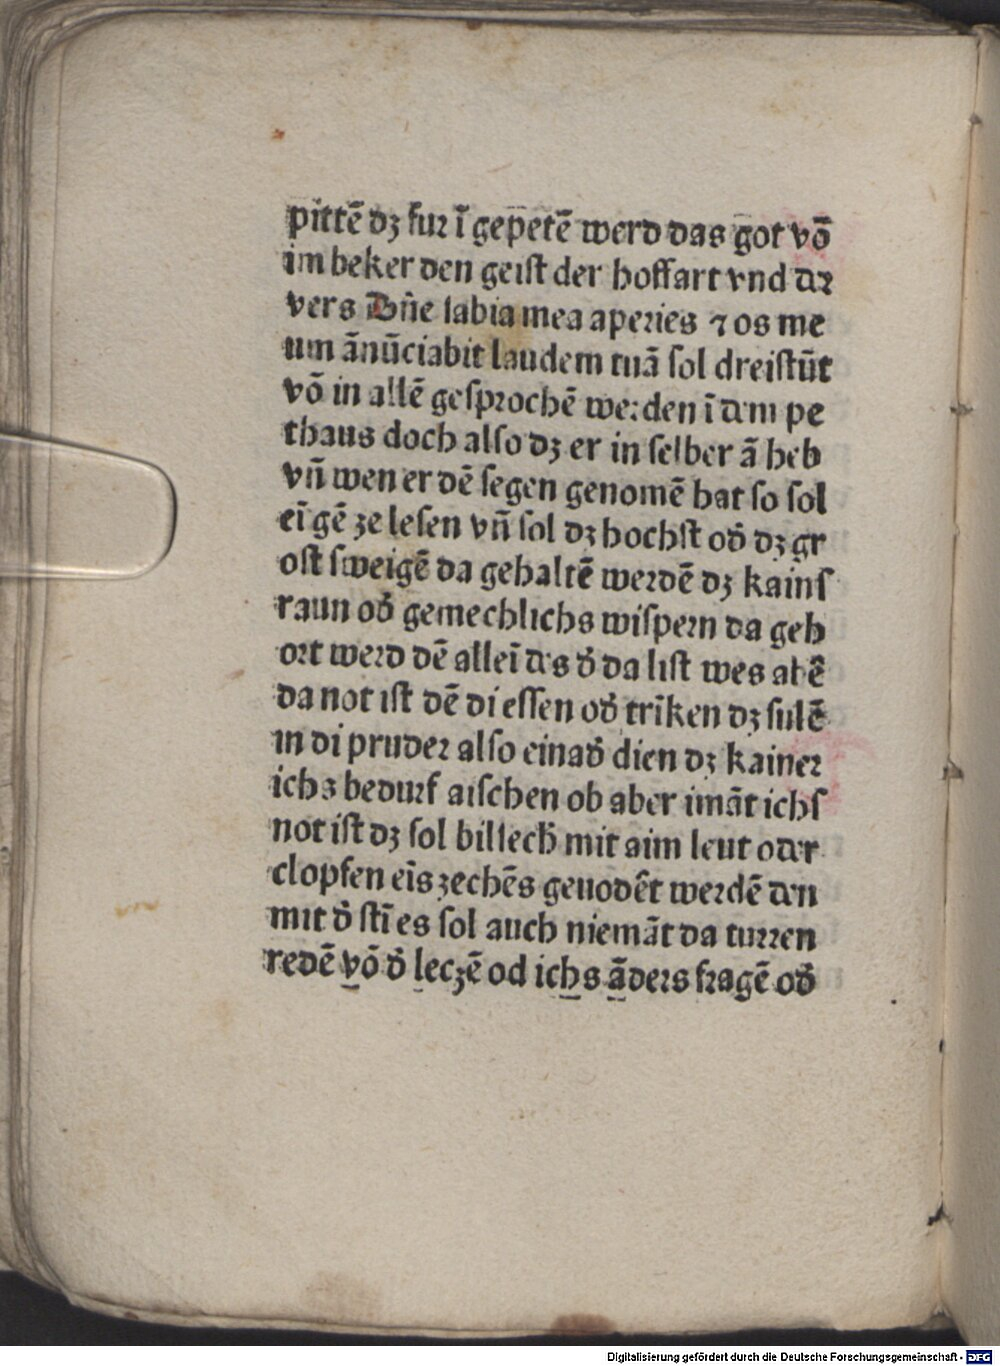 pittē dʒ fur ī gepetē werd das got vō
im beker den geiſt der hoffart vnd der
vers Dn̄e labia mea aperies ⁊ os me
um ānūciabit laudem tuā ſol dreiſtūt
vō in allē geſprochē werden ī dem pe
thaus doch alſo dʒ er in ſelber ā heb
vn̄ wen er dē ſegen genomē hat ſo ſol
eī gē ze leſen vn̄ ſol dʒ hochſt od̓ dʒ gr
oſt ſweigē da gehaltē werdē dʒ kainſ
raun od̓ gemechlichs wiſpern da geh
ort werd dē alleī des d̓ da liſt wes abē
da not iſt dē di eſſen od̓ trīken dʒ ſulē
in di pruder alſo einad̓ dien dʒ kainer
ichs bedurf aiſchen ob aber imāt ichſ
not iſt dʒ ſol billech mit aim leut oder
clopfen eīs zechēs gevodēt werdē den
mit d̓ ſtī es ſol auch niemāt da turren
redē vō d̓ leczē od ichs āders fragē od̓
Digitalisierung gefördert durch die Deutsche Forschungsgemeinschaft - DFG